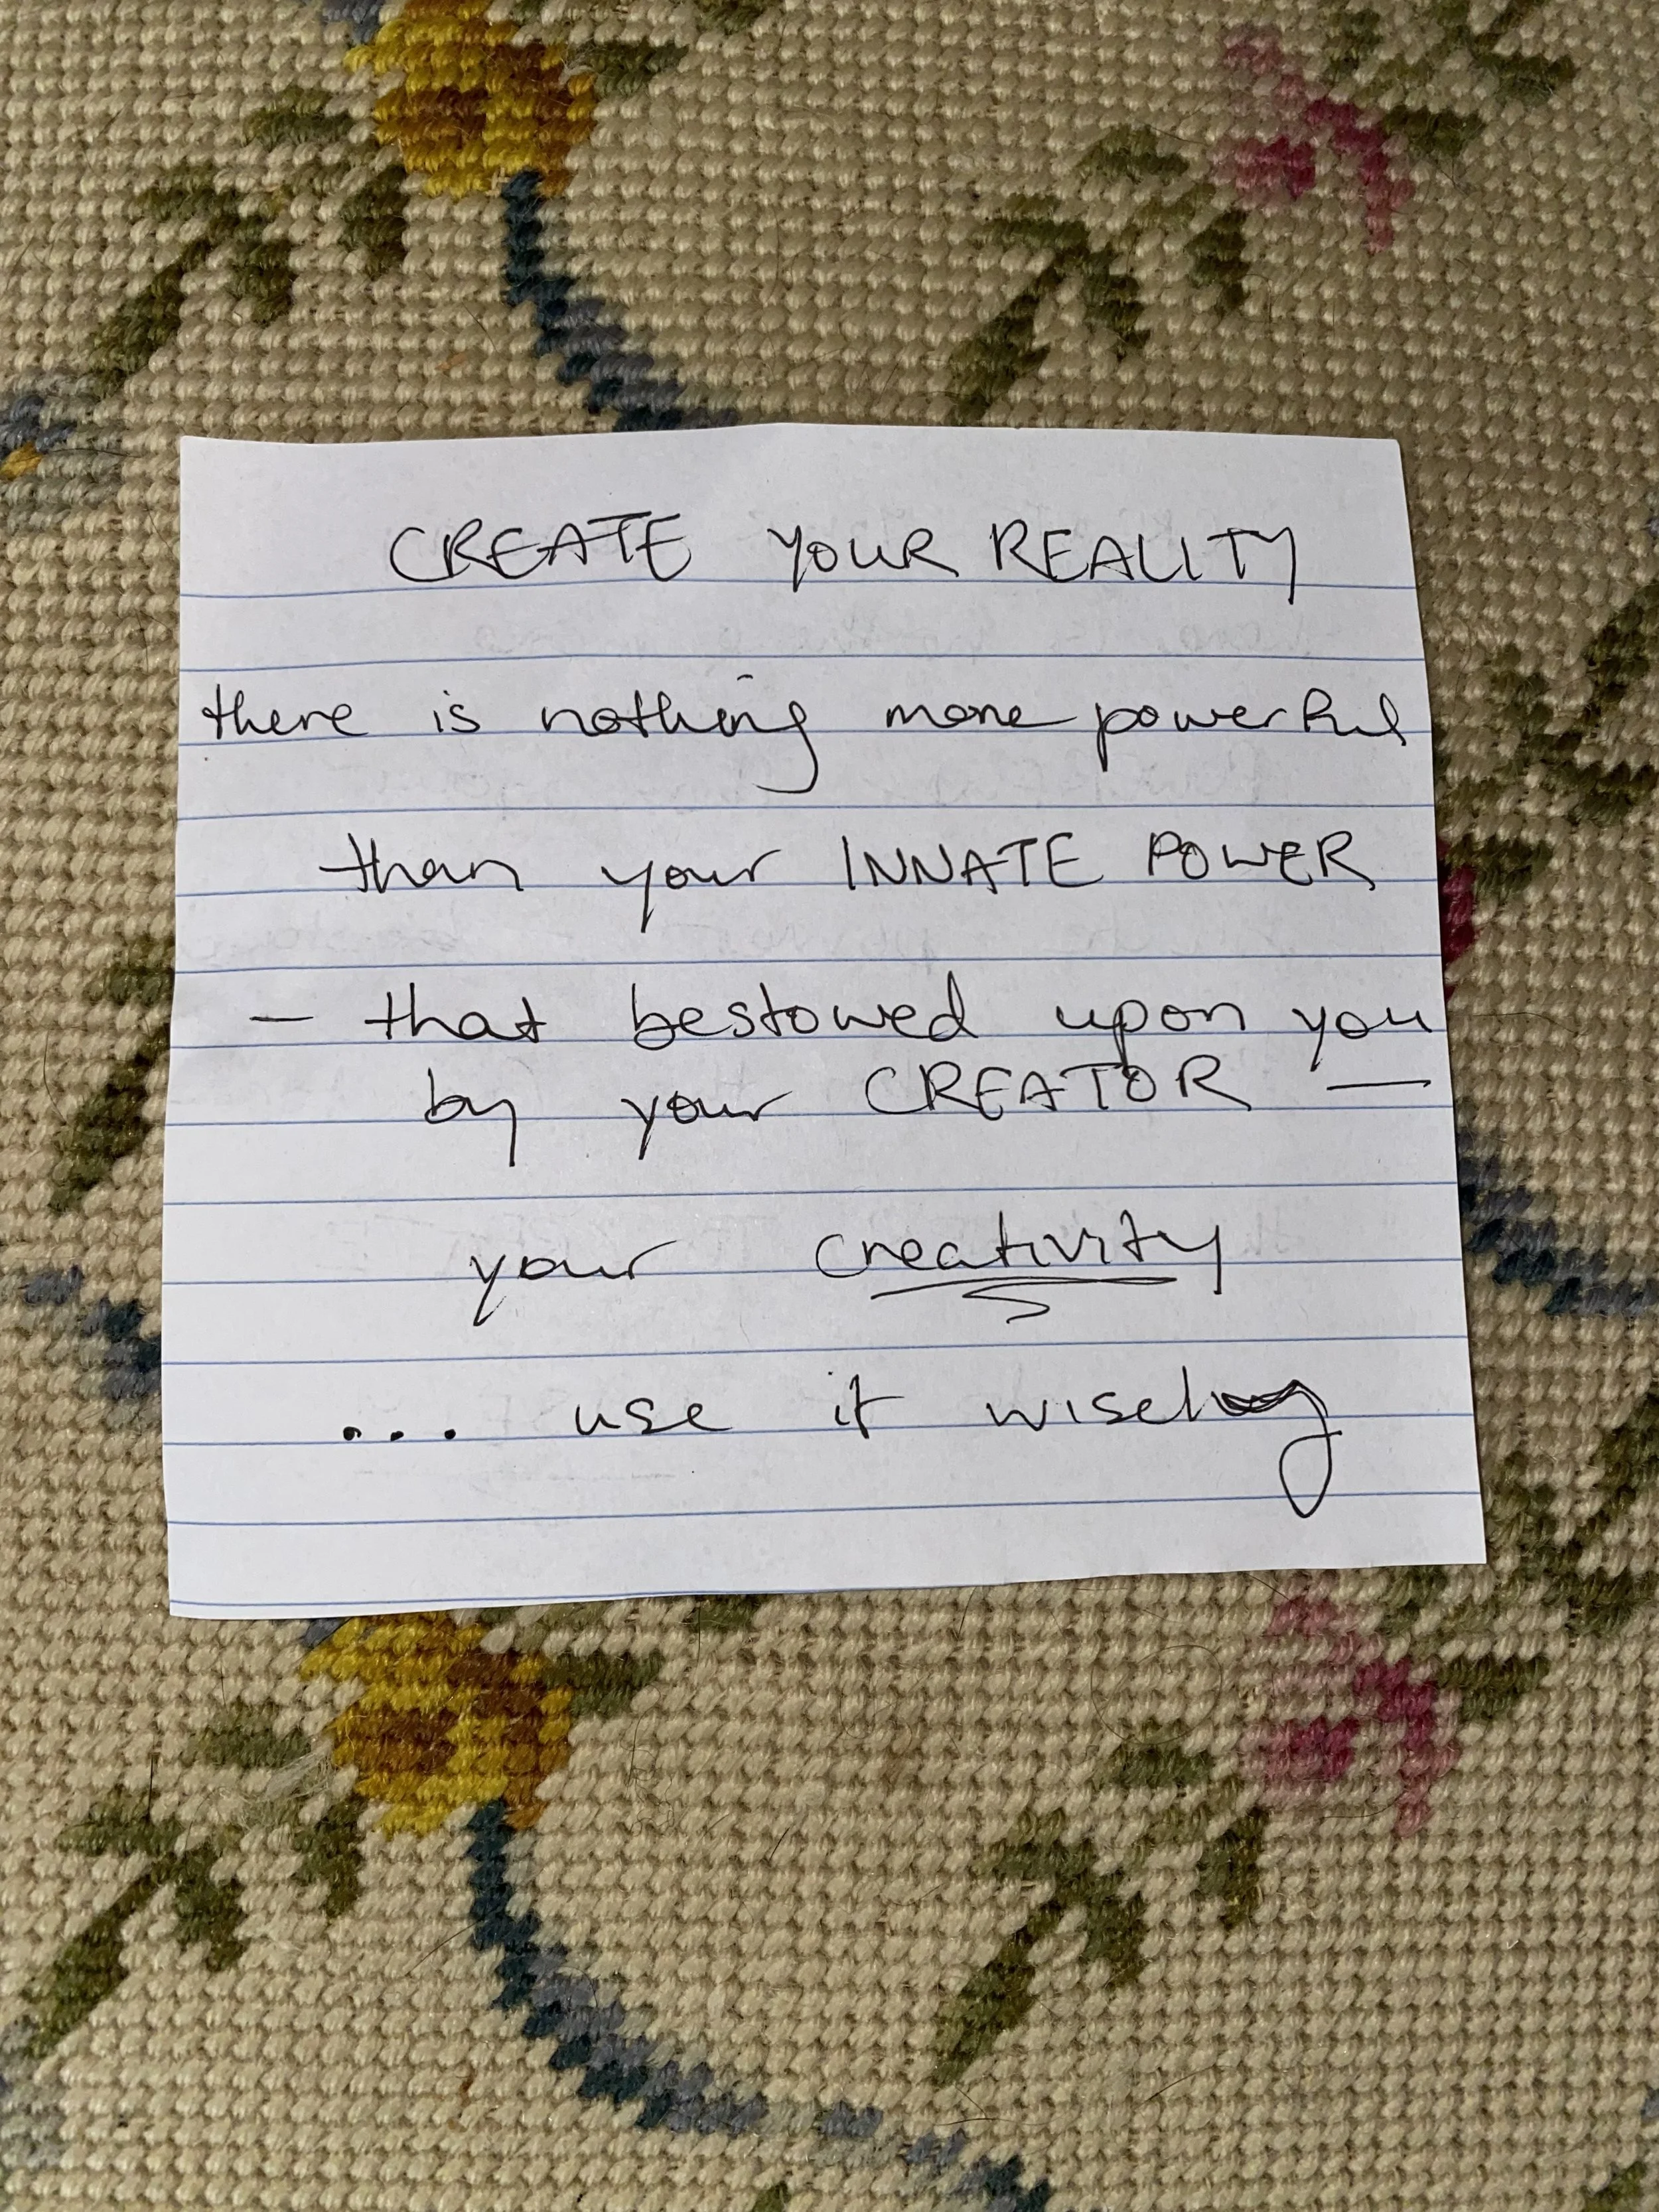 CREATE YOUR REALITY
there is nothing more powerful
than your INNATE POWER
- that bestowed upon you
by your CREATOR —
your creativity
... use it wisely